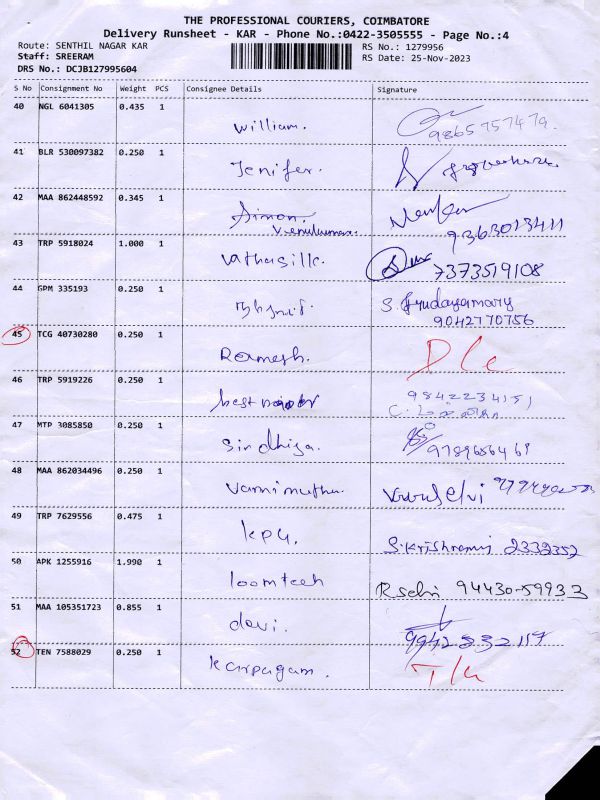 THE PROFESSIONAL COURIERS, COIMBATORE
Delivery Runsheet - KAR - Phone No.:0422-3505555 - Page No.:4
Route: SENTHIL NAGAR KAR
RS No.: 1279956
Staff: SREERAM
RS Date: 25-Nov-2023
DRS No.: DCJB127995604
S No Consignment No Weight PCS Consignee Details Signature
40 NGL 6041305 0.435 1 William.
9865757479.
41 BLR 530097382 0.250 1 Jenifer.
42 MAA 862448592 0.345 1 Simon.
9363013411
43 TRP 5918024 1.000 1
7373519108
44 GPM 335193 0.250 1
S. Irudayamary
9042770756
45 TCG 40730280 0.250 1 Ramesh.
46 TRP 5919226 0.250 1 best
9842234151
47 MTP 3085850 0.250 1 Sindhiya.
48 MAA 862034496 0.250 1
49 TRP 7629556 0.475 1
2332352
50 APK 1255916 1.990 1 loomtech
94430-59933
51 MAA 105351723 0.855 1 devi.
52 TEN 7588029 0.250 1 karpagam.